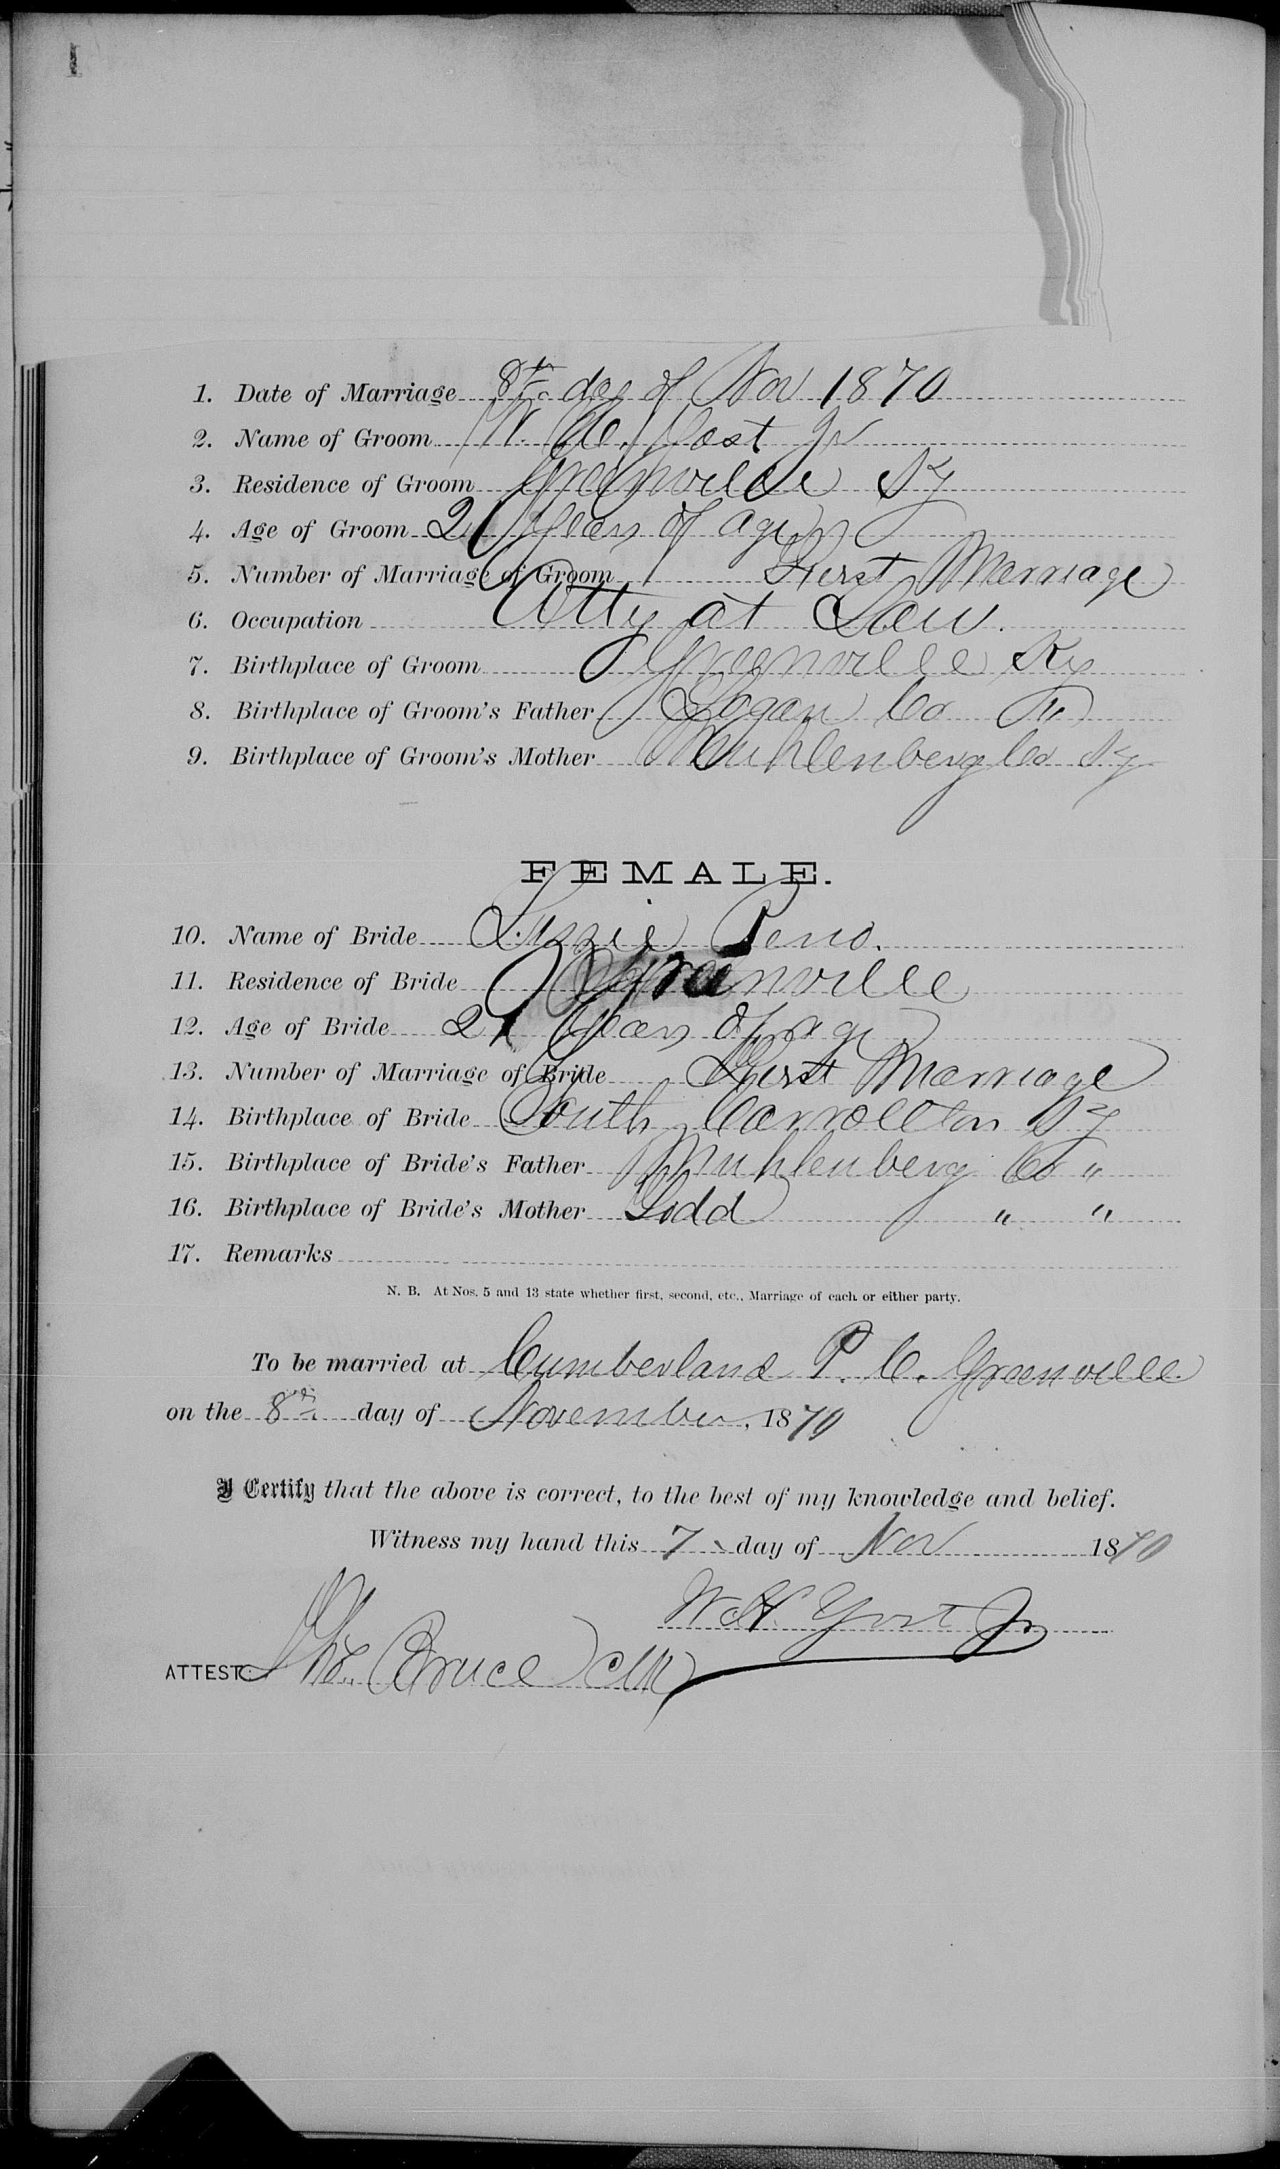 1
1. Date of Marriage 8th day of Nov 1870
2. Name of Groom W. H. Yost Jr
3. Residence of Groom Greenville Ky
4. Age of Groom 21 Years of age
5. Number of Marriage of Groom First Marriage
6. Occupation Atty at Law.
7. Birthplace of Groom Greenville Ky
8. Birthplace of Groom's Father Logan Co "
9. Birthplace of Groom's Mother Muhlenberg Co Ky
FEMALE.
10. Name of Bride Lizzie Reno.
11. Residence of Bride Greenville
12. Age of Bride 21 Years of age
13. Number of Marriage of Bride First Marriage
14. Birthplace of Bride South Carrollton Ky
15. Birthplace of Bride's Father Muhlenberg Co "
16. Birthplace of Bride's Mother Todd " "
17. Remarks
N. B. At Nos. 5 and 13 state whether first, second, etc., Marriage of each or either party.
To be married at Cumberland P. C. Greenville
on the 8th day of November, 1870
I Certify that the above is correct, to the best of my knowledge and belief.
Witness my hand this 7 day of Nov 1870
W. H. Yost Jr
ATTEST: Bruce Clk